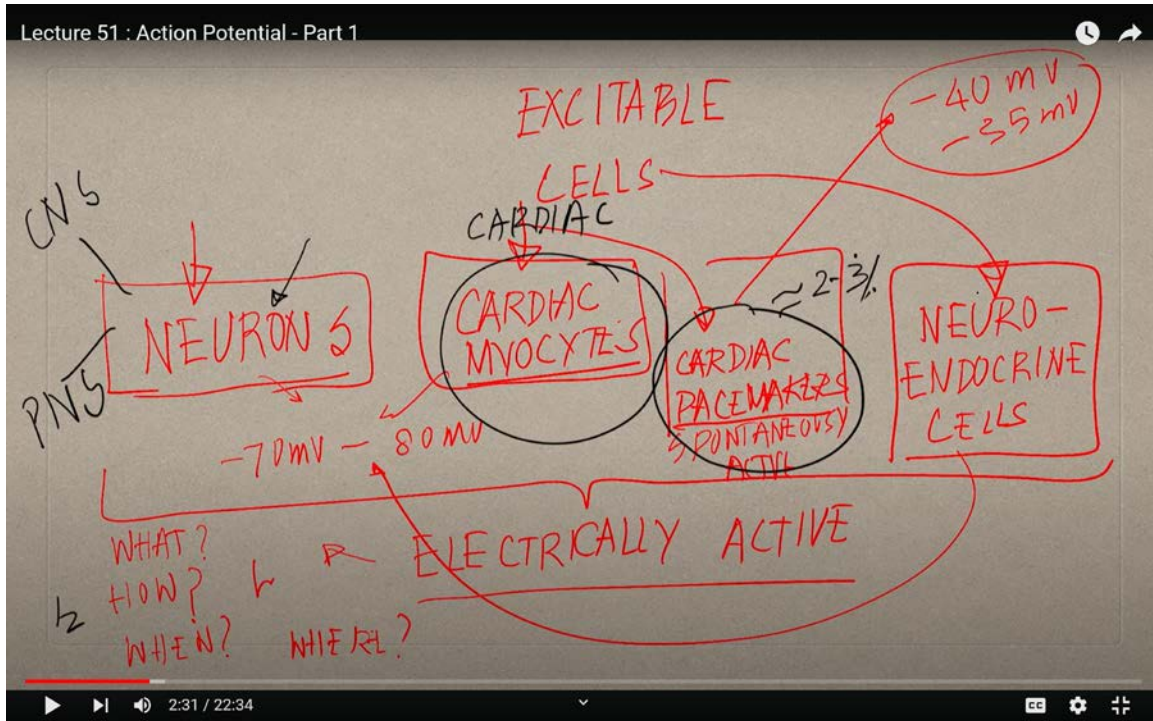 Lecture 51 : Action Potential - Part 1
EXCITABLE
CELLS
-40 mV
-35 mV
CNS
PNS
NEURONS
CARDIAC
CARDIAC
MYOCYTES
≈ 2-3%
CARDIAC
PACEMAKERS
SPONTANEOUSY
ACTIVE
NEURO-
ENDOCRINE
CELLS
-70mV - 80mV
ELECTRICALLY ACTIVE
WHAT?
HOW?
WHEN? WHERE?
2:31 / 22:34
CC